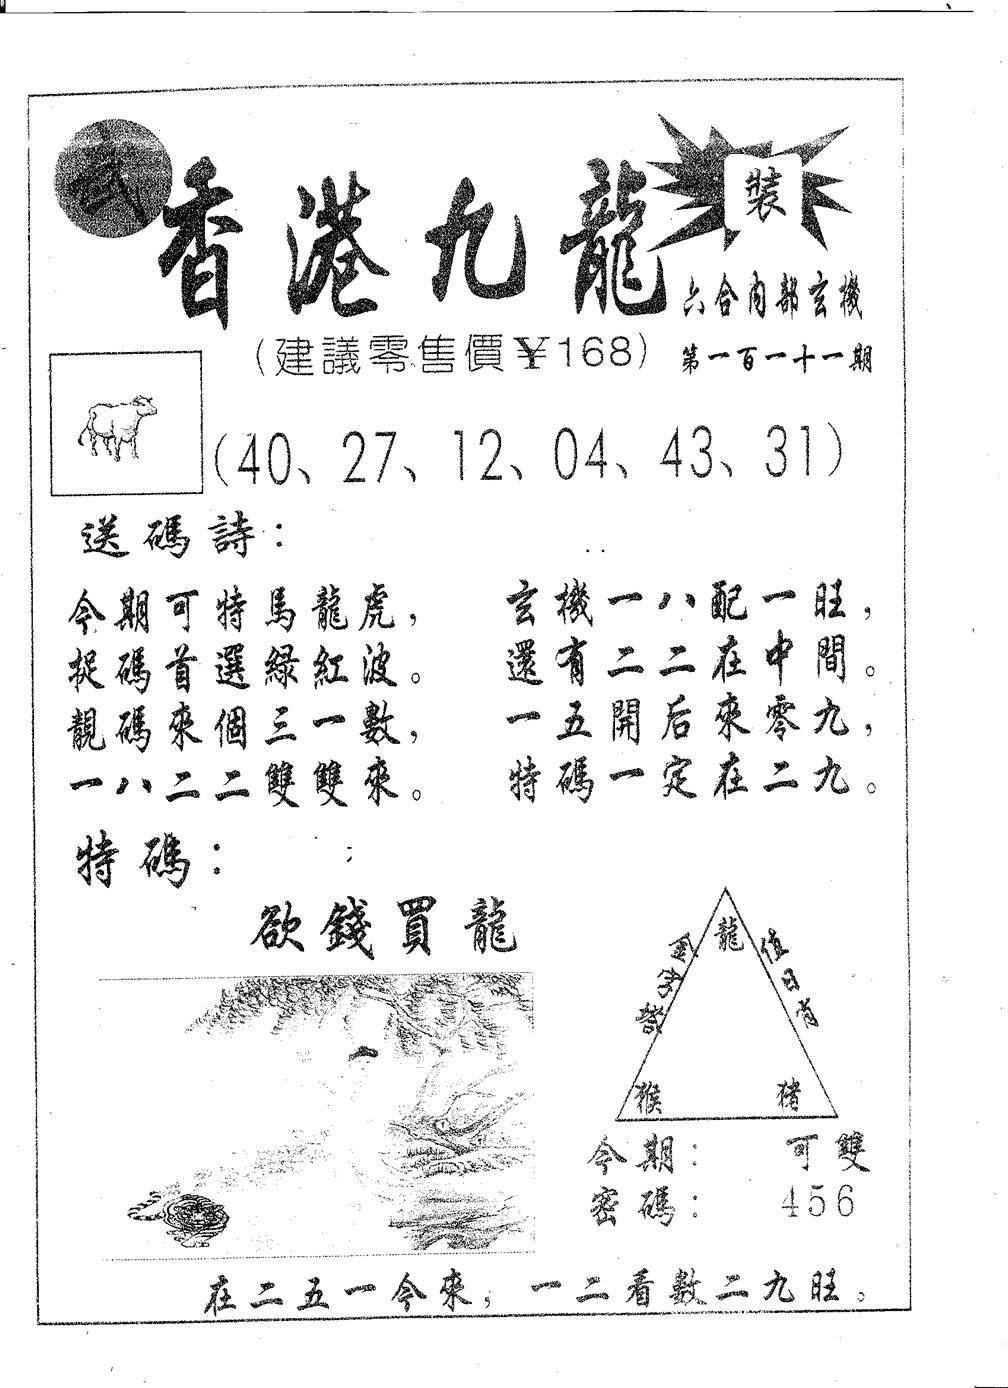 武
香港九龍
裝
六合内部玄機
(建議零售價¥168)
第一百一十一期
(40、27、12、04、43、31)
送碼詩：
今期可特馬龍虎，
捉碼首選綠紅波。
靚碼來個三一數，
一八二二雙雙來。
玄機一八配一旺，
還有二二在中間。
一五開后來零九，
特碼一定在二九。
特碼：
欲錢買龍
龍
值日肖
猴
猪
今期： 可雙
密碼： 456
在二五一今來，一二看數二九旺。